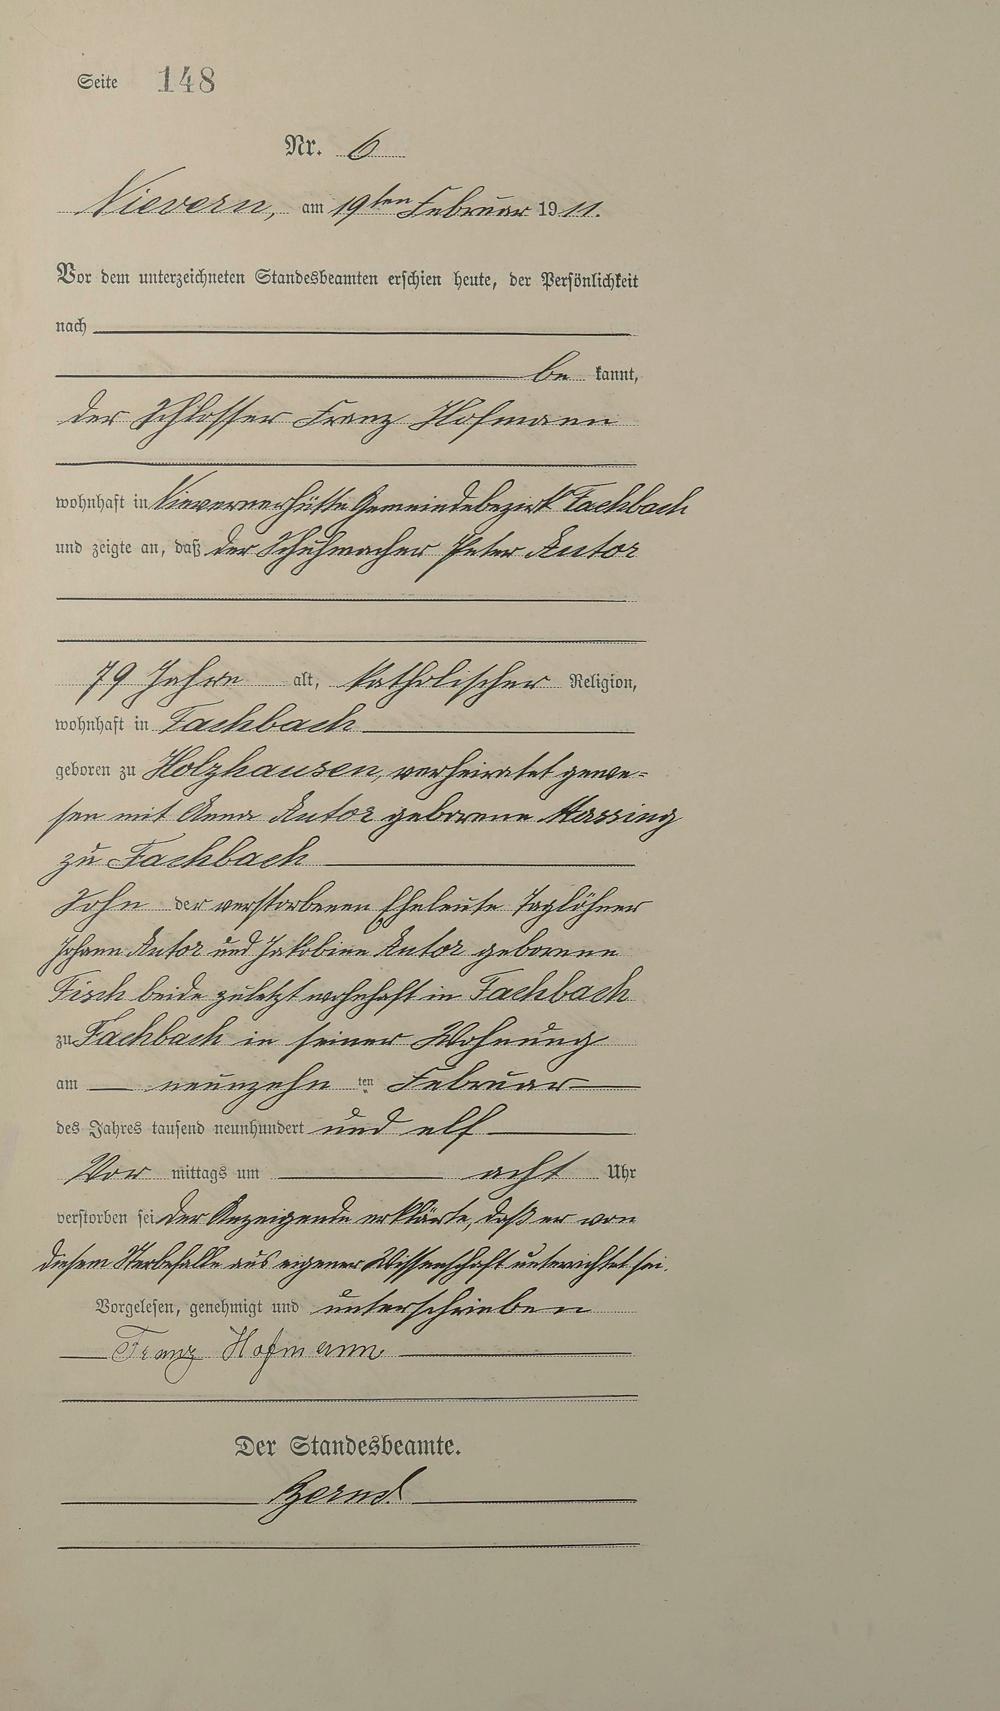 Seite 148
Nr. 6
Nievern, am 19ten Februar 1911.
Vor dem unterzeichneten Standesbeamten erschien heute, der Persönlichkeit
nach
be kannt,
der Schlosser Franz Hofmann
wohnhaft in Nievernerhütte Gemeindebezirk Fachbach
und zeigte an, daß der Schuhmacher Peter Autor
79 Jahre alt, katholischer Religion,
wohnhaft in Fachbach
geboren zu Holzhausen, verheiratet gewe-
sen mit Anna Autor geborene Massing
zu Fachbach
Sohn der verstorbenen Eheleute Taglöhner
Johann Autor und Jakobine Autor geborene
Fisch beide zuletzt wohnhaft in Fachbach
zu Fachbach in seiner Wohnung
am neunzehn ten Februar
des Jahres tausend neunhundert und elf
Vor mittags um acht Uhr
verstorben sei. Der Anzeigende erklärte, daß er von
diesem Sterbefalle aus eigener Wissenschaft unterrichtet sei.
Vorgelesen, genehmigt und unterschrieben
Franz Hofmann
Der Standesbeamte.